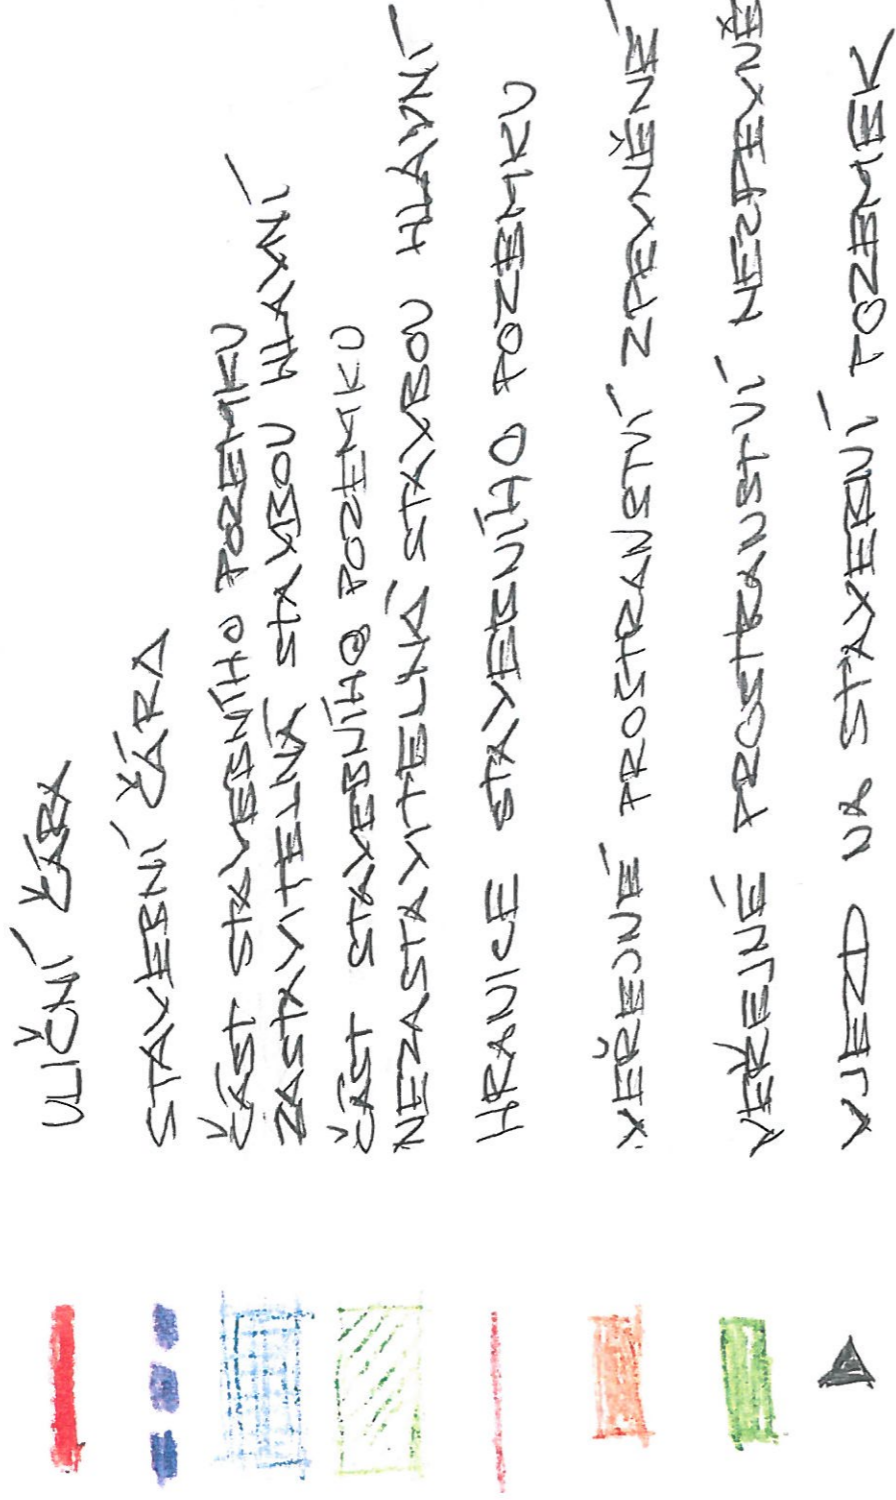 ULIČNÍ ČÁRA
STAVEBNÍ ČÁRA
ČÁST STAVEBNÍHO POZEMKU
ZASTAVITELNÁ STAVBOU HLAVNÍ
ČÁST STAVEBNÍHO POZEMKU
NEZASTAVITELNÁ STAVBOU HLAVNÍ
HRANICE STAVEBNÍHO POZEMKU
VEŘEJNÉ PROSTRANSTVÍ ZPEVNĚNÉ
VEŘEJNÉ PROSTRANSTVÍ NEZPEVNĚ
VJEZD NA STAVEBNÍ POZEMEK